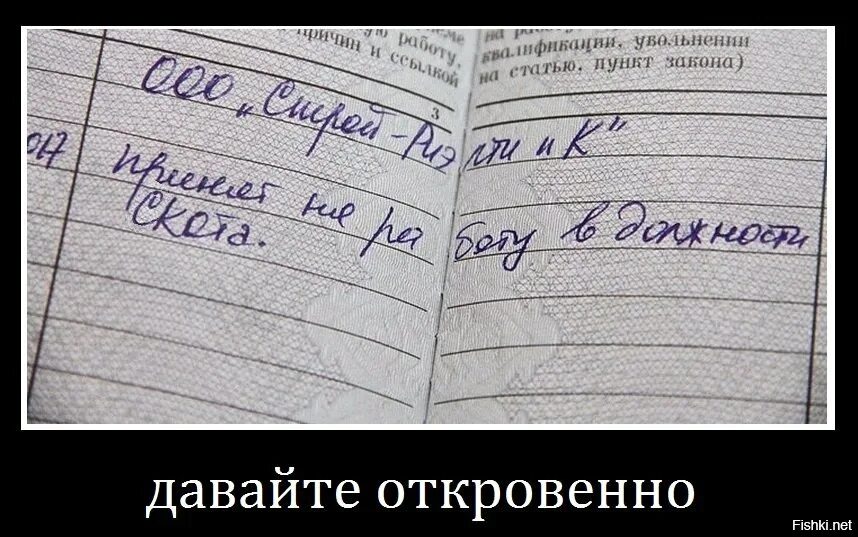 ую работу,
причин и ссылкой
на работу
квалификации, увольнении
на статью, пункт закона)
3
ООО „Строй-Риэлти и К"
017
принят на работу в должности
скота.
давайте откровенно
Fishki.net